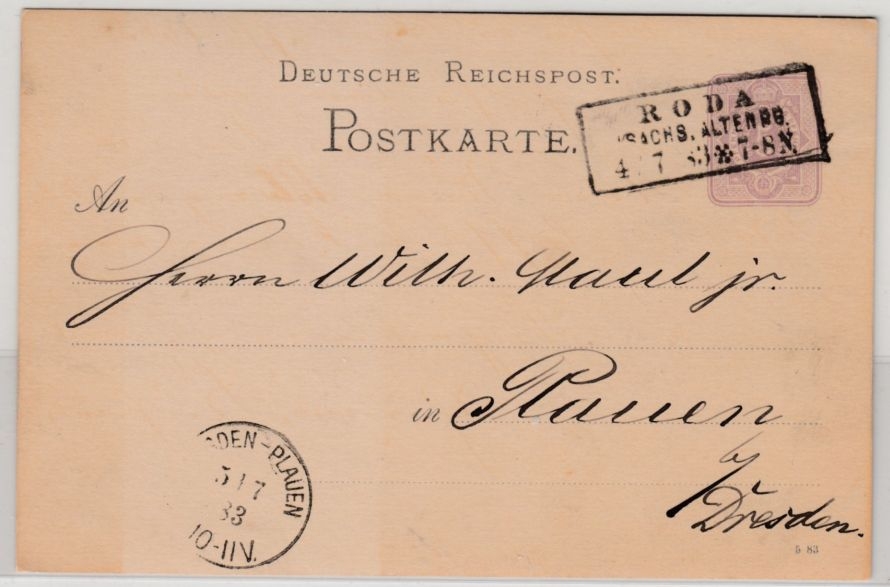 DEUTSCHE REICHSPOST.
POSTKARTE.
RODA
SACHS. ALTENBG.
4/7 83 * 7-8N.
An
Herrn Wilh. jr.
in Plauen
b/
Dresden.
DEN-PLAUEN
5/7
83
10-11V.
5 83